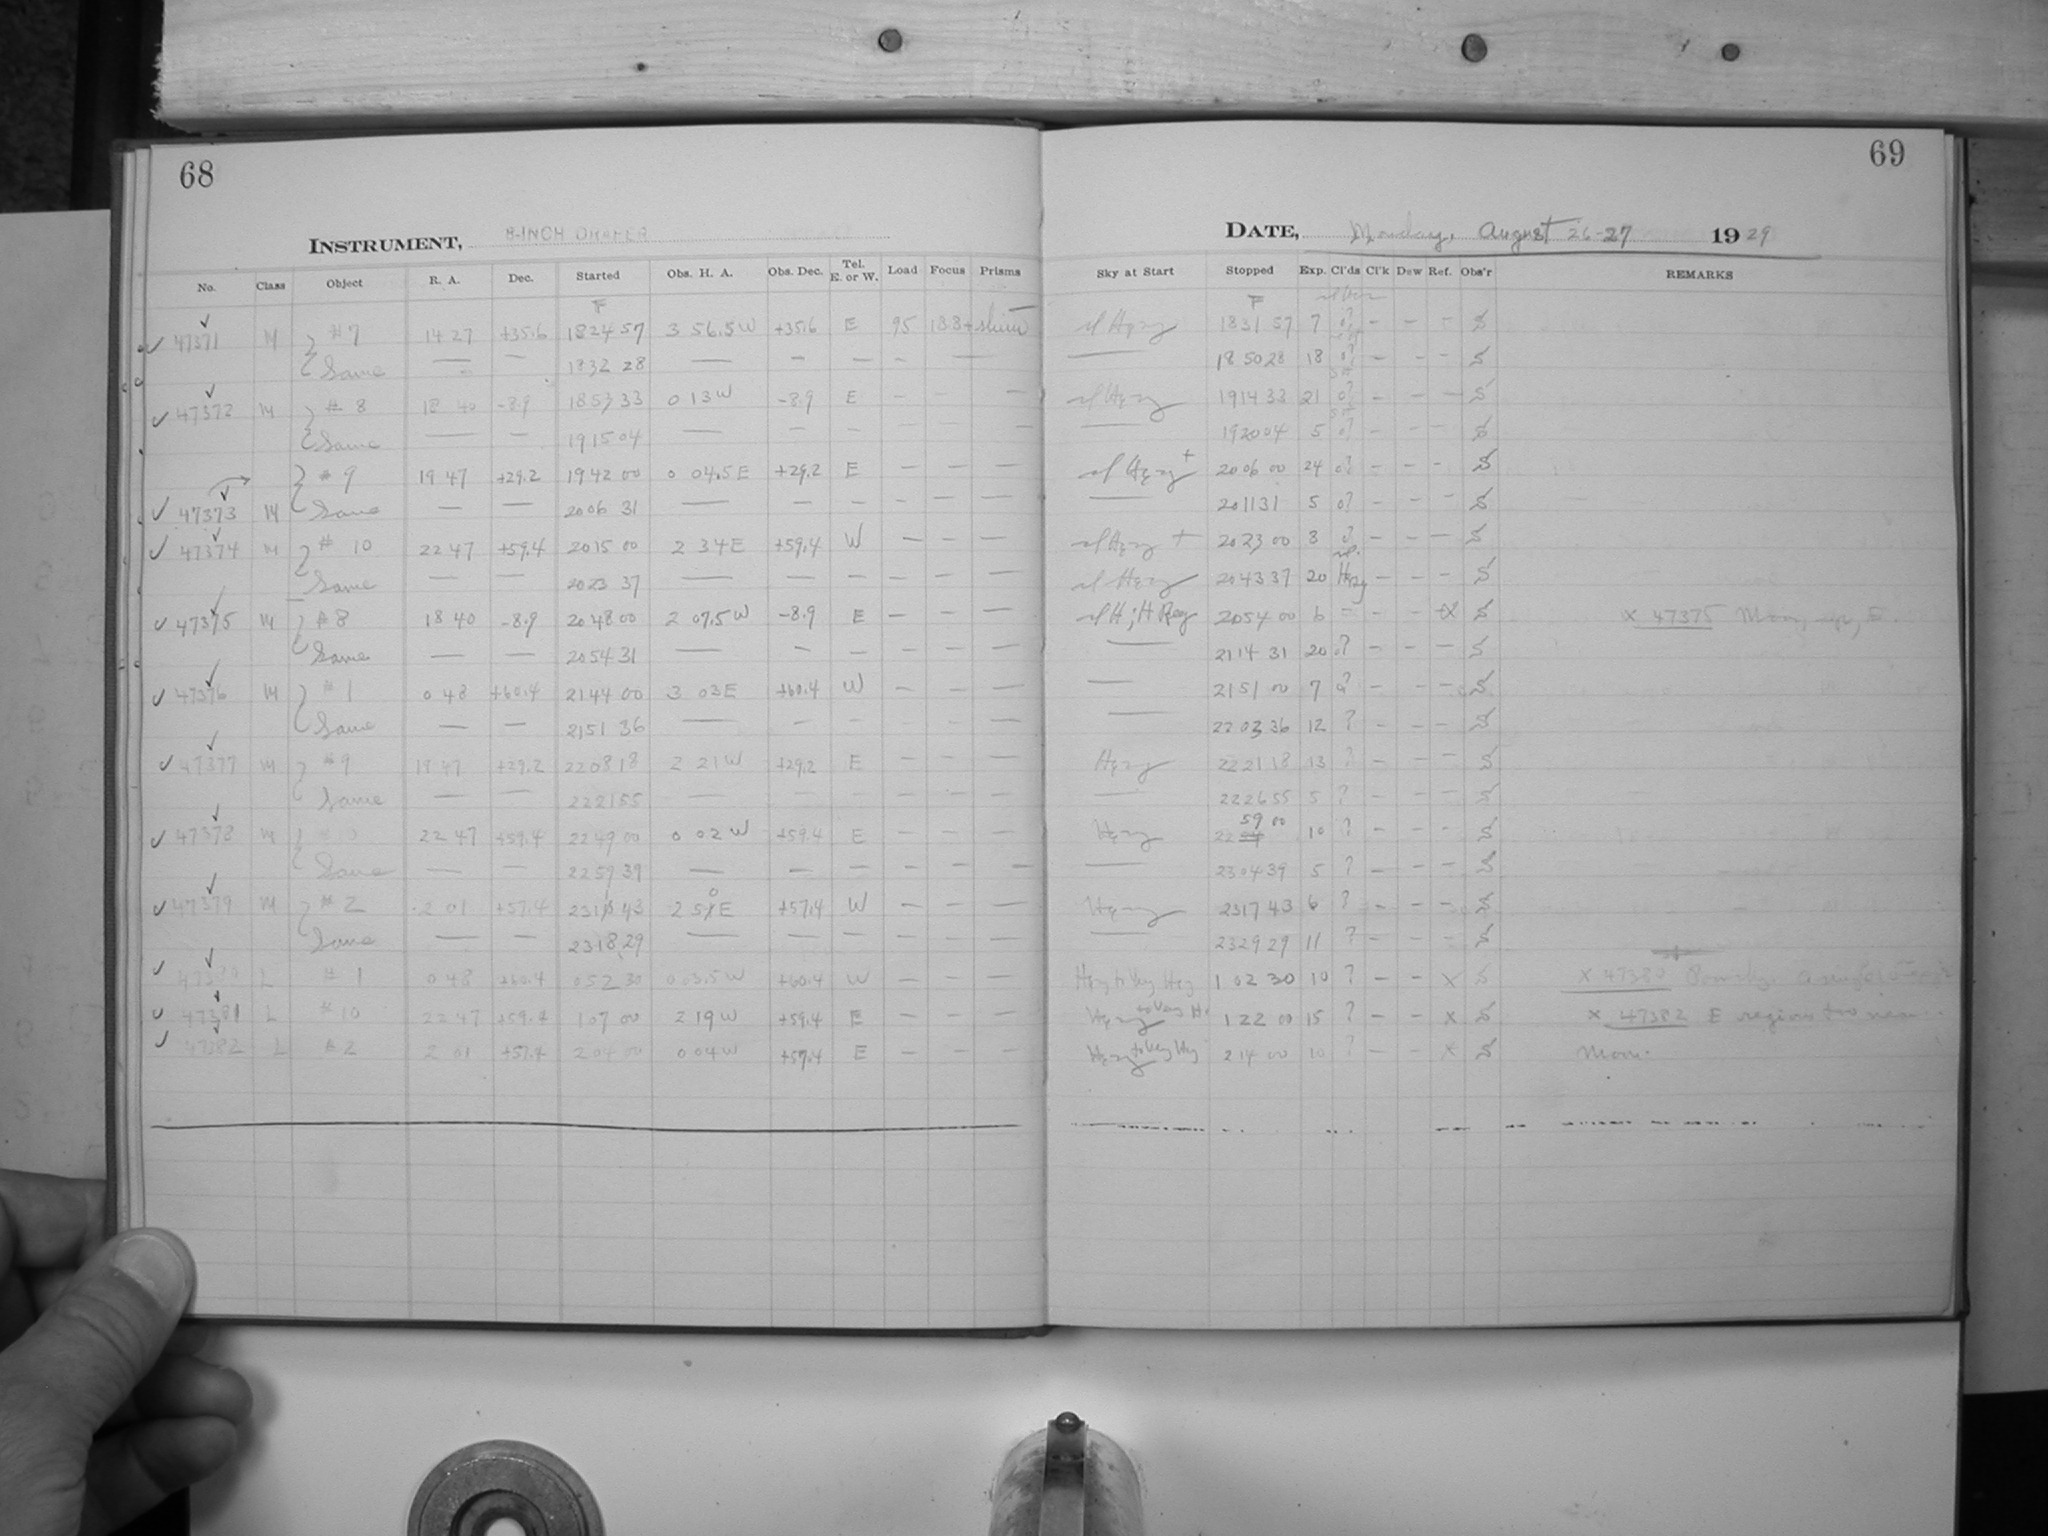 68
INSTRUMENT, 8-INCH DRAPER
No. Class Object R. A. Dec. Started Obs. H. A. Obs. Dec. Tel. E. or W. Load Focus Prisms
F
47371 M #7 14 27 +35.6 18 24 57 3 56.5 W +35.6 E 95
Same — — 18 32 28 — — — — — —
47372 M #8 18 40 -8.9 18 53 33 0 13 W -8.9 E — — —
Same — — 19 15 04 — — — — — —
#9 19 47 +29.2 19 42 00 0 04.5 E +29.2 E — — —
47373 M Same — — 20 06 31 — — — — — —
47374 M #10 22 47 +59.4 20 15 00 2 34 E +59.4 W — — —
Same — — 20 23 37 — — — — — —
47375 M #8 18 40 -8.9 20 48 00 2 07.5 W -8.9 E — — —
Same — — 20 54 31 — — — — — —
47376 M #1 0 48 +60.4 21 44 00 3 03 E +60.4 W — — —
Same — — 21 51 36 — — — — — —
47377 M #9 19 47 +29.2 22 08 18 2 21 W +29.2 E — — —
Same — — 22 21 55 — — — — — —
47378 M #10 22 47 +59.4 22 49 00 0 02 W +59.4 E — — —
Same — — 22 59 39 — — — — — —
47379 M #2 2 01 +57.4 23 11 43 2 50 E +57.4 W — — —
Same — — 23 18 29 — — — — — —
47380 L #1 0 48 +60.4 0 52 30 0 03.5 W +60.4 W — — —
47381 L #10 22 47 +59.4 1 07 00 2 19 W +59.4 E — — —
47382 L #2 2 01 +57.4 2 04 00 0 04 W +57.4 E — — —
69
DATE, Monday, August 26-27 1929
Sky at Start Stopped Exp. Cl'ds Cl'k Dew Ref. Obs'r REMARKS
F
sl Hazy 18 31 57 7 0? — — — S
— 18 50 28 18 0? — — — S
sl Hazy 19 14 33 21 0? — — — S
— 19 20 04 5 0? — — — S
sl Hazy + 20 06 00 24 0? — — — S
— 20 11 31 5 0? — — — S
sl Hazy + 20 23 00 8 0? — — — S
sl Hazy 20 43 37 20 Hzy — — — S
20 54 00 6 — — — X S X 47375 Moon
— 21 14 31 20 0? — — — S
— 21 51 00 7 0? — — — S
— 22 03 36 12 ? — — — S
Hazy 22 21 18 13 ? — — — S
— 22 26 55 5 ? — — — S
Hazy 22 59 00 10 ? — — — S
— 23 04 39 5 ? — — — S
Hazy 23 17 43 6 ? — — — S
— 23 29 29 11 ? — — — S
Hzy to Very Hzy 1 02 30 10 ? — — X S X 47380
Hazy to Very Hz 1 22 00 15 ? — — X S X 47382 E region too near
Hazy to Very Hzy 2 14 00 10 ? — — X S Moon.